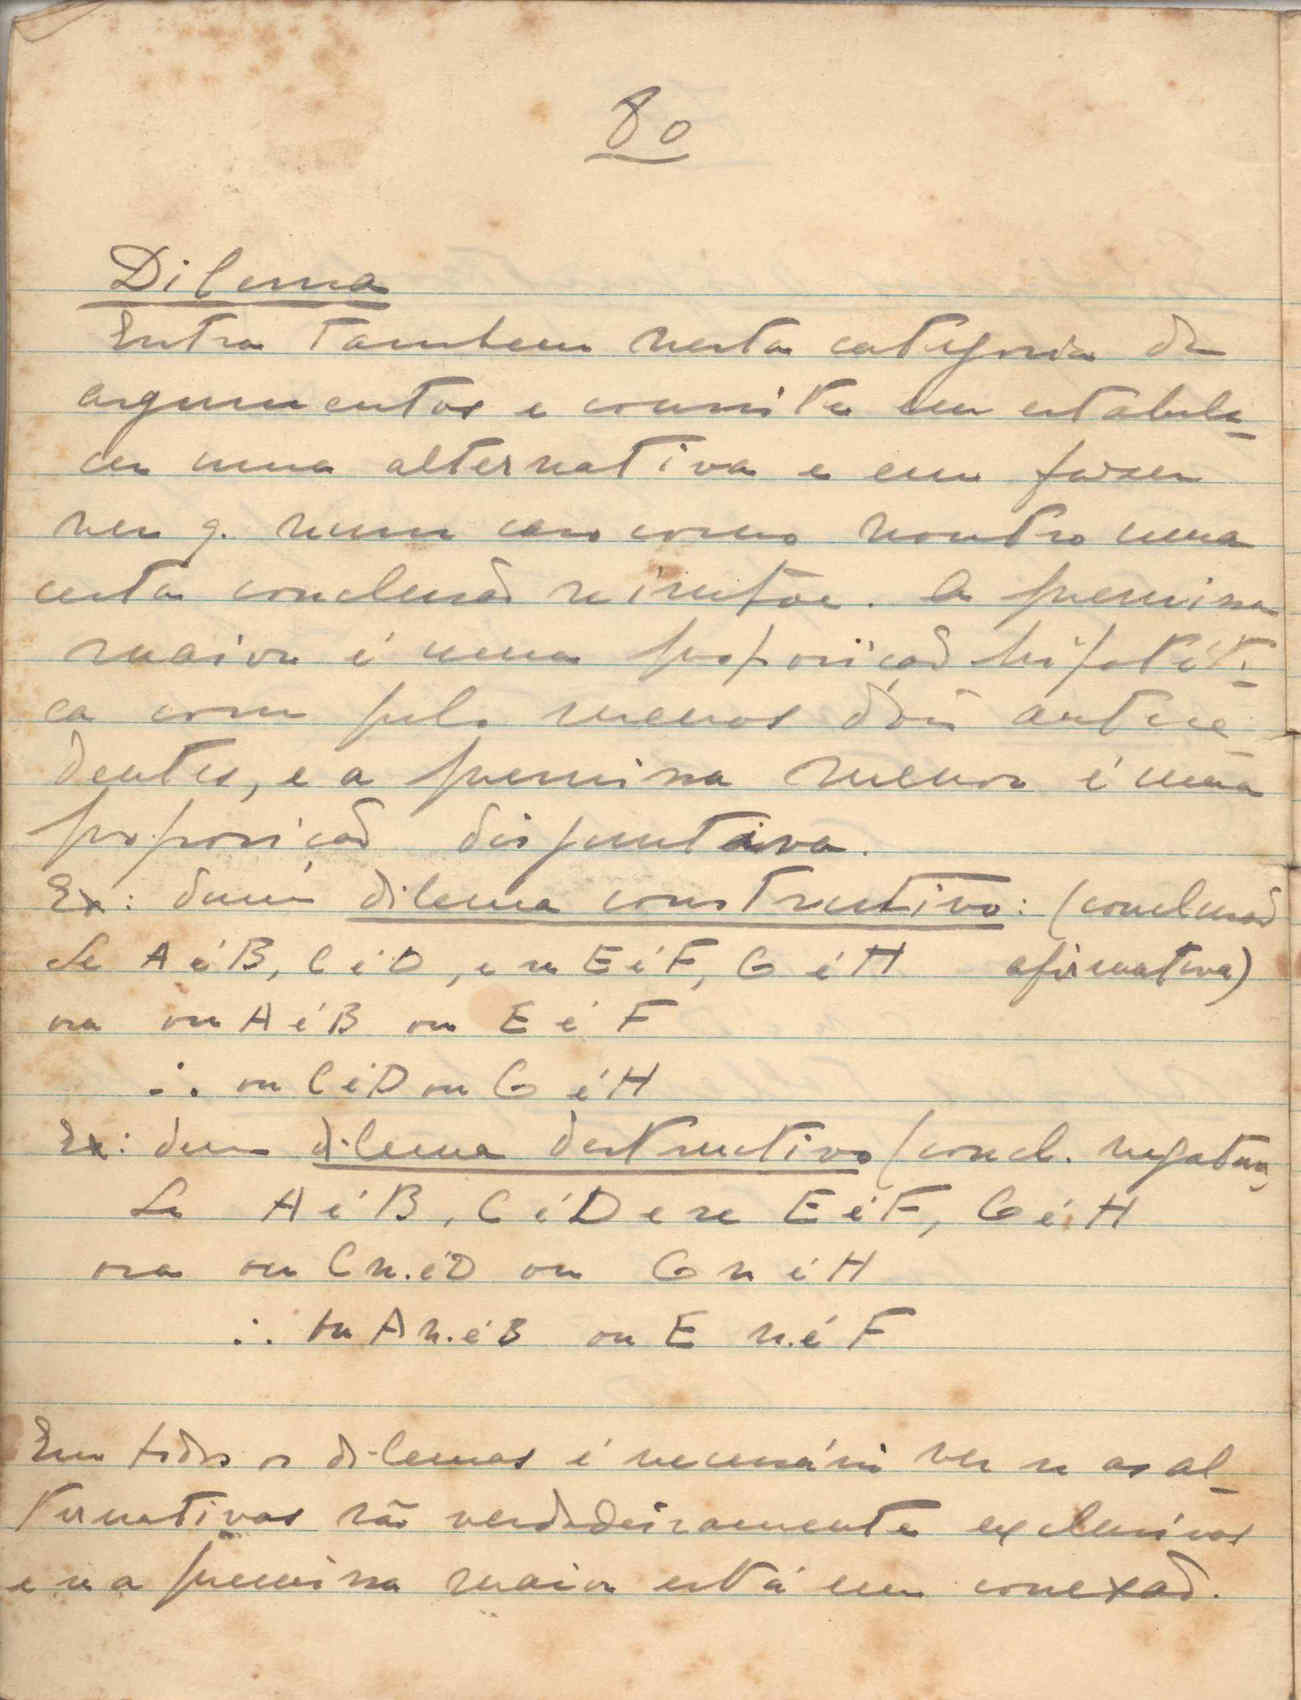 80
Dilema
Entra tambem nesta categoria de
argumentos e consiste em estabele-
cer uma alternativa e em fazer
ver q. num caso como noutro uma
certa conclusão se impõe. A premissa
maior é uma proposição hipotéti-
ca com pelo menos dois antece-
dentes, e a premissa menor é uma
proposição disjuntiva.
Ex: dum dilema construtivo: (conclusão
Se A é B, C é D, e se E é F, G é H afirmativa)
ora ou A é B ou E é F
∴ ou C é D ou G é H
Ex: dum dilema destructivo (concl. negativa)
Se A é B, C é D e se E é F, G é H
ora ou C n. é D ou G n é H
∴ ou A n. é B ou E n. é F
Em todos os dilemas é necessário ver se as al-
ternativas são verdadeiramente exclusivas
e se a premissa maior está em conexão.